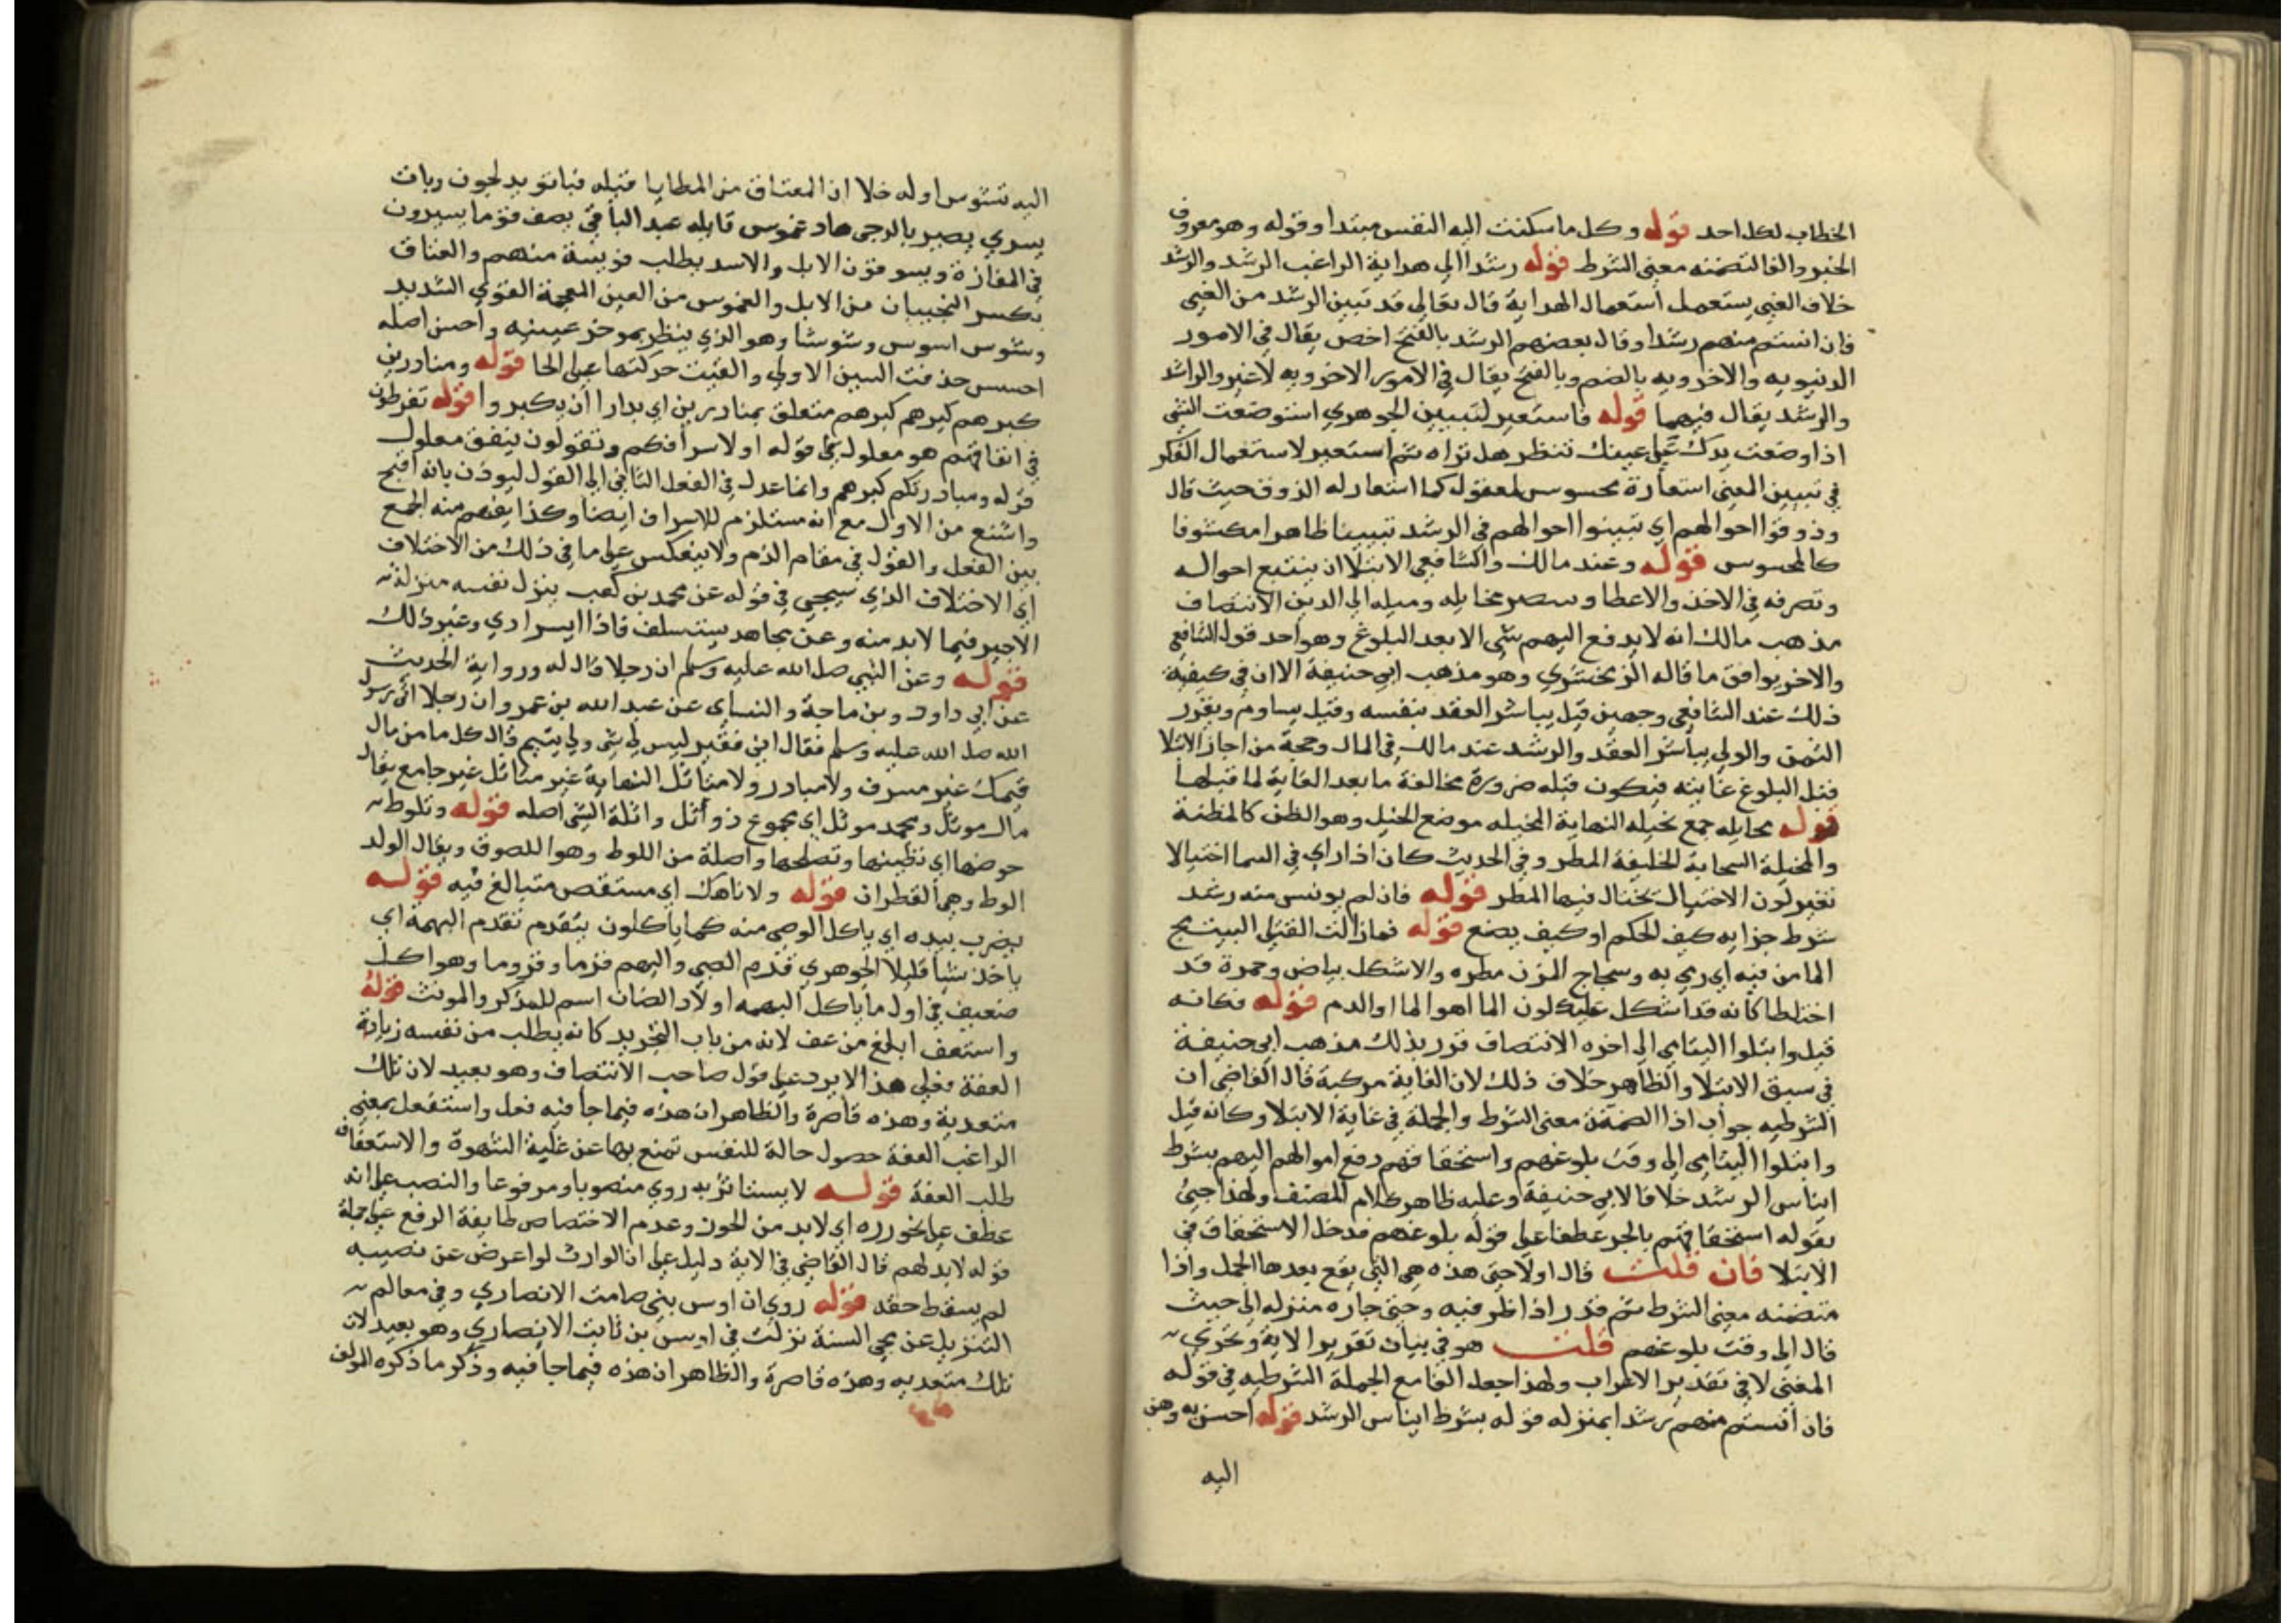 الخطاب لكل احد قوله وكل ما سكنت اليه النفس مبتدا وقوله وهو معروف
الخبر والفا لتضمنه معنى الشرط قوله رشدا الي هداية الراغب الرشد والرشد
خلاف الغي يستعمل استعمال الهداية قال تعالي قد تبين الرشد من الغي
فان انستم منهم رشدا وقال بعضهم الرشد بالفتح اخص يقال في الامور
الدنيويه والاخرويه بالضم وبالفتح يقال في الامور الاخرويه لا غير والراشد
والرشيد يقال فيهما قوله فاستعير لتبيين الجوهري استوضعت الشي
اذا وضعت يدك علي عينك تنظر هل تراه ثم استعير لاستعمال الفكر
في تبيين المعني استعارة محسوس لمعقول كما استعار له الذوق حيث قال
وذوقوا احوالهم اي تبينوا احوالهم في الرشد تبيينا ظاهرا مكشوفا
كالمحسوس قوله وعند مالك والشافعي الابتلا ان يتتبع احواله
وتصرفه في الاخذ والاعطا ومخايله وميله الي الدين الانتصاف
مذهب مالك انه لا يدفع اليهم شي الا بعد البلوغ وهو احد قول الشافعي
والاخر يوافق ما قاله الزمخشري وهو مذهب ابي حنيفة الا ان في كيفية
ذلك عند الشافعي وجهين قيل يباشر العقد بنفسه وقيل يساوم ويقرر
الثمن والولي يباشر العقد والرشد عند مالك في المال وحجة من اجاز الابتلا
قبل البلوغ غايته فيكون قبله ضرورة مخالفة ما بعد الغاية لما قبلها
قوله مخايله جمع مخيله النهاية المخيله موضع الخيل وهو الظن كالمظنة
والمخيلة السحابة الخليقة المطر وفي الحديث كان اذا راي في السما اختيالا
تغير لون الاختيال يختال فيها المطر قوله فان لم يونس منه رشد
شرط جزايه كيف الحكم او كيف يصنع قوله فمازالت القتلي البيت مج
الما من فيه اي رمي به ومجاج المزن مطره والاشكل بياض وحمرة قد
اختلطا كانه قد اشكل عليك لون الما اهو الما او الدم قوله فكانه
قيل وابتلوا اليتامي الي اخره الانتصاف قرر بذلك مذهب ابي حنيفة
في سبق الابتلا والظاهر خلاف ذلك لان الغاية مركبة قال القاضي ان
الشرطيه جواب اذا المضمنة معنى الشرط والجملة في غاية الابتلا وكانه قيل
وابتلوا اليتامي الي وقت بلوغهم واستحقاقهم دفع اموالهم اليهم بشرط
ايناس الرشد خلافا لابي حنيفة وعليه ظاهر كلام المصنف ولهذا جيئ
بقوله استحقاقهم بالجر عطفا علي قوله بلوغهم فدخل الاستحقاق في
الابتلا فان قلت قال اولا حتي هذه هي التي يقع بعدها الجمل واذا
متضمنه معنى الشرط ثم قدر اذا ظرفيه وحتي جاره منزله الي حيث
قال الي وقت بلوغهم قلت هو في بيان تقرير الاية وتحري
المعني لا في تقدير الاعراب ولهذا جعل الفا مع الجملة الشرطيه في قوله
فان انستم منهم رشدا بمنزله قوله بشرط ايناس الرشد قوله احسن به وهن
اليه
اليه شوس اوله خلا ان العتاق من المطايا قبله فباتوا يدلجون وبات
يسري بصير بالدجي هاد غموس قايله عبد الباقي يصف قوما يسيرون
في المفازة ويسوقون الابل والاسد يطلب فريسة منهم والعتاق
بكسر النجيبات من الابل والغموس من الغين المعجمة القوي الشديد
وشوس اسوس وشوسا وهو الذي ينظر بموخر عينيه واحسن اصله
احسسن حذفت السين الاولي والقيت حركتها علي الحا قوله ومبادرين
كبرهم كبرهم كبرهم متعلق بمبادرين اي بدارا ان يكبروا قوله تفرطون
في انفاقهم هو معلول في قوله او لاسرافكم وتقولون ينفق معلول
قوله ومبادرتكم كبرهم وانما عدل في الفعل الثاني الي القول ليوذن بانه اقبح
واشنع من الاول مع انه مستلزم للاسراف ايضا وكذا يفهم منه الجمع
بين الفعل والقول في مقام الذم ولا ينعكس علي ما في ذلك من الاختلاف
اي الاختلاف الذي سيجي في قوله عن محمد بن كعب ينزل نفسه منزلة
الاجير فيما لابد منه وعن مجاهد يستسلف فاذا ايسر ادي وغير ذلك
قوله وعن النبي صلى الله عليه وسلم ان رجلا قال له ورواية الحديث
عن ابي داود وبن ماجة والنساي عن عبد الله بن عمرو ان رجلا اتى رسول
الله صلى الله عليه وسلم فقال اني فقير ليس لي شي ولي يتيم قال كل ما من مال
يتيمك غير مسرف ولا مبادر ولا متاثل النهاية غير متاثل غير جامع يقال
مال موثل ومجد موثل اي مجموع ذو اثل واثلة الشي اصله قوله وتلوط
حوضها اي تطينها وتصلحها واصلة من اللوط وهو اللصوق ويقال الولد
الوط وهما القطران قوله ولا ناهك اي مستقص متبالغ فيه قوله
يضرب بيده اي ياكل الوصي منه كما ياكلون يتقدم تقدم البهمة اي
ياخذ شيا قليلا الجوهري قرم الصبي والبهم قرما وقروما وهو اكل
ضعيف في اول ما ياكل البهمه اولاد الضان اسم للمذكر والمونث قوله
واستعف ابلغ من عف لانه من باب التجريد كانه يطلب من نفسه زيادة
العفة فعلي هذا لا يرد علي قول صاحب الانتصاف وهو بعيد لان تلك
متعدية وهذه قاصرة والظاهر ان هذه فيما جا فيه فعل واستفعل بمعني
الراغب العفة حصول حالة للنفس تمنع بها عن غلبة الشهوة والاستعفاف
طلب العفة قوله لا يستاثر به روي منصوبا ومرفوعا والنصب علي انه
عطف علي يحوزره اي لابد من الحوز وعدم الاختصاص طابقة الرفع علي جملة
قوله لابد لهم قال القاضي في الاية دليل علي ان الوارث لو اعرض عن نصيبه
لم يسقط حقه قوله روي ان اوس بني صامت الانصاري وفي معالم
التنزيل عن محي السنة نزلت في اوس بن ثابت الانصاري وهو بعيد لان
تلك متعديه وهذه قاصرة والظاهر ان هذه فيما جا فيه وذكر ما ذكره المولف